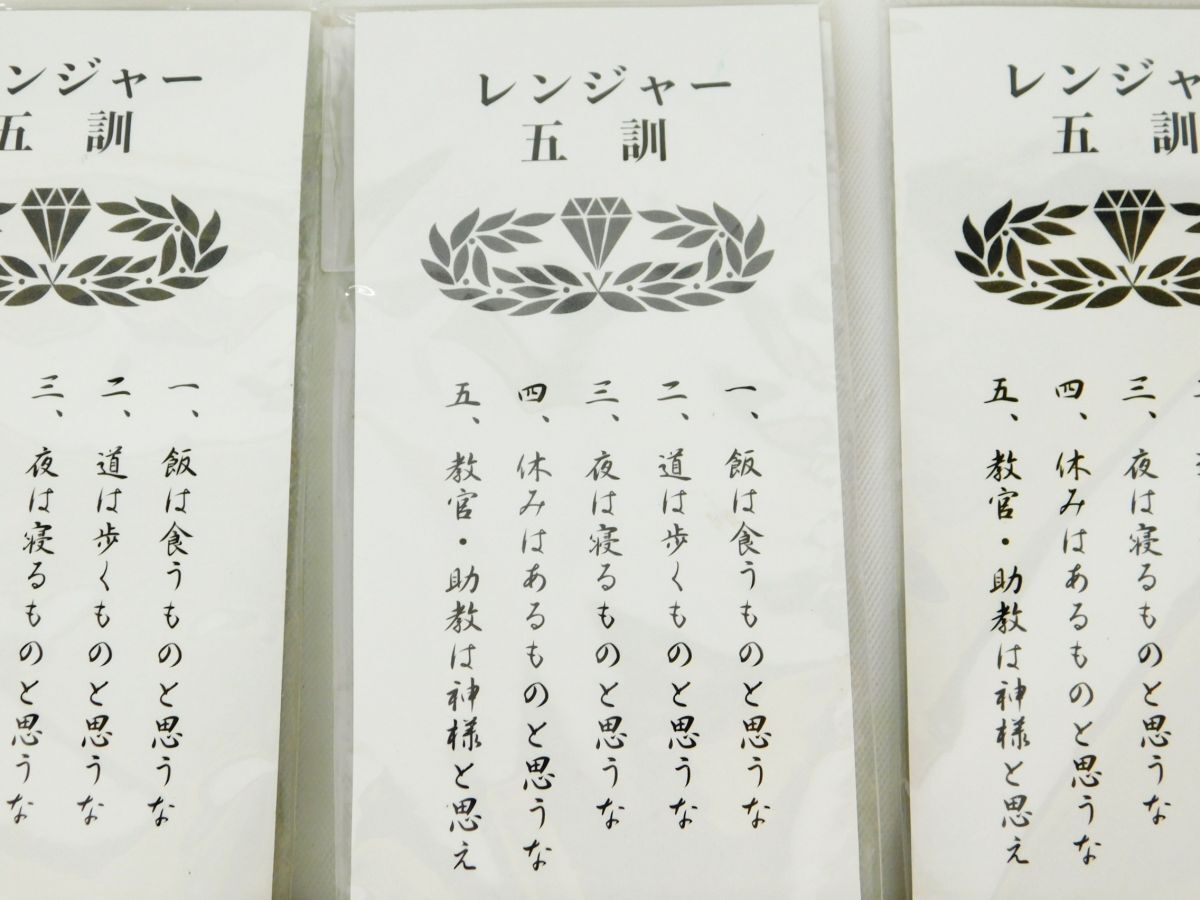 ンジャー
五訓
一、飯は食うものと思うな
二、道は歩くものと思うな
三、夜は寝るものと思うな
レンジャー
五訓
一、飯は食うものと思うな
二、道は歩くものと思うな
三、夜は寝るものと思うな
四、休みはあるものと思うな
五、教官・助教は神様と思え
レンジャ
五訓
三、夜は寝るものと思うな
四、休みはあるものと思うな
五、教官・助教は神様と思え